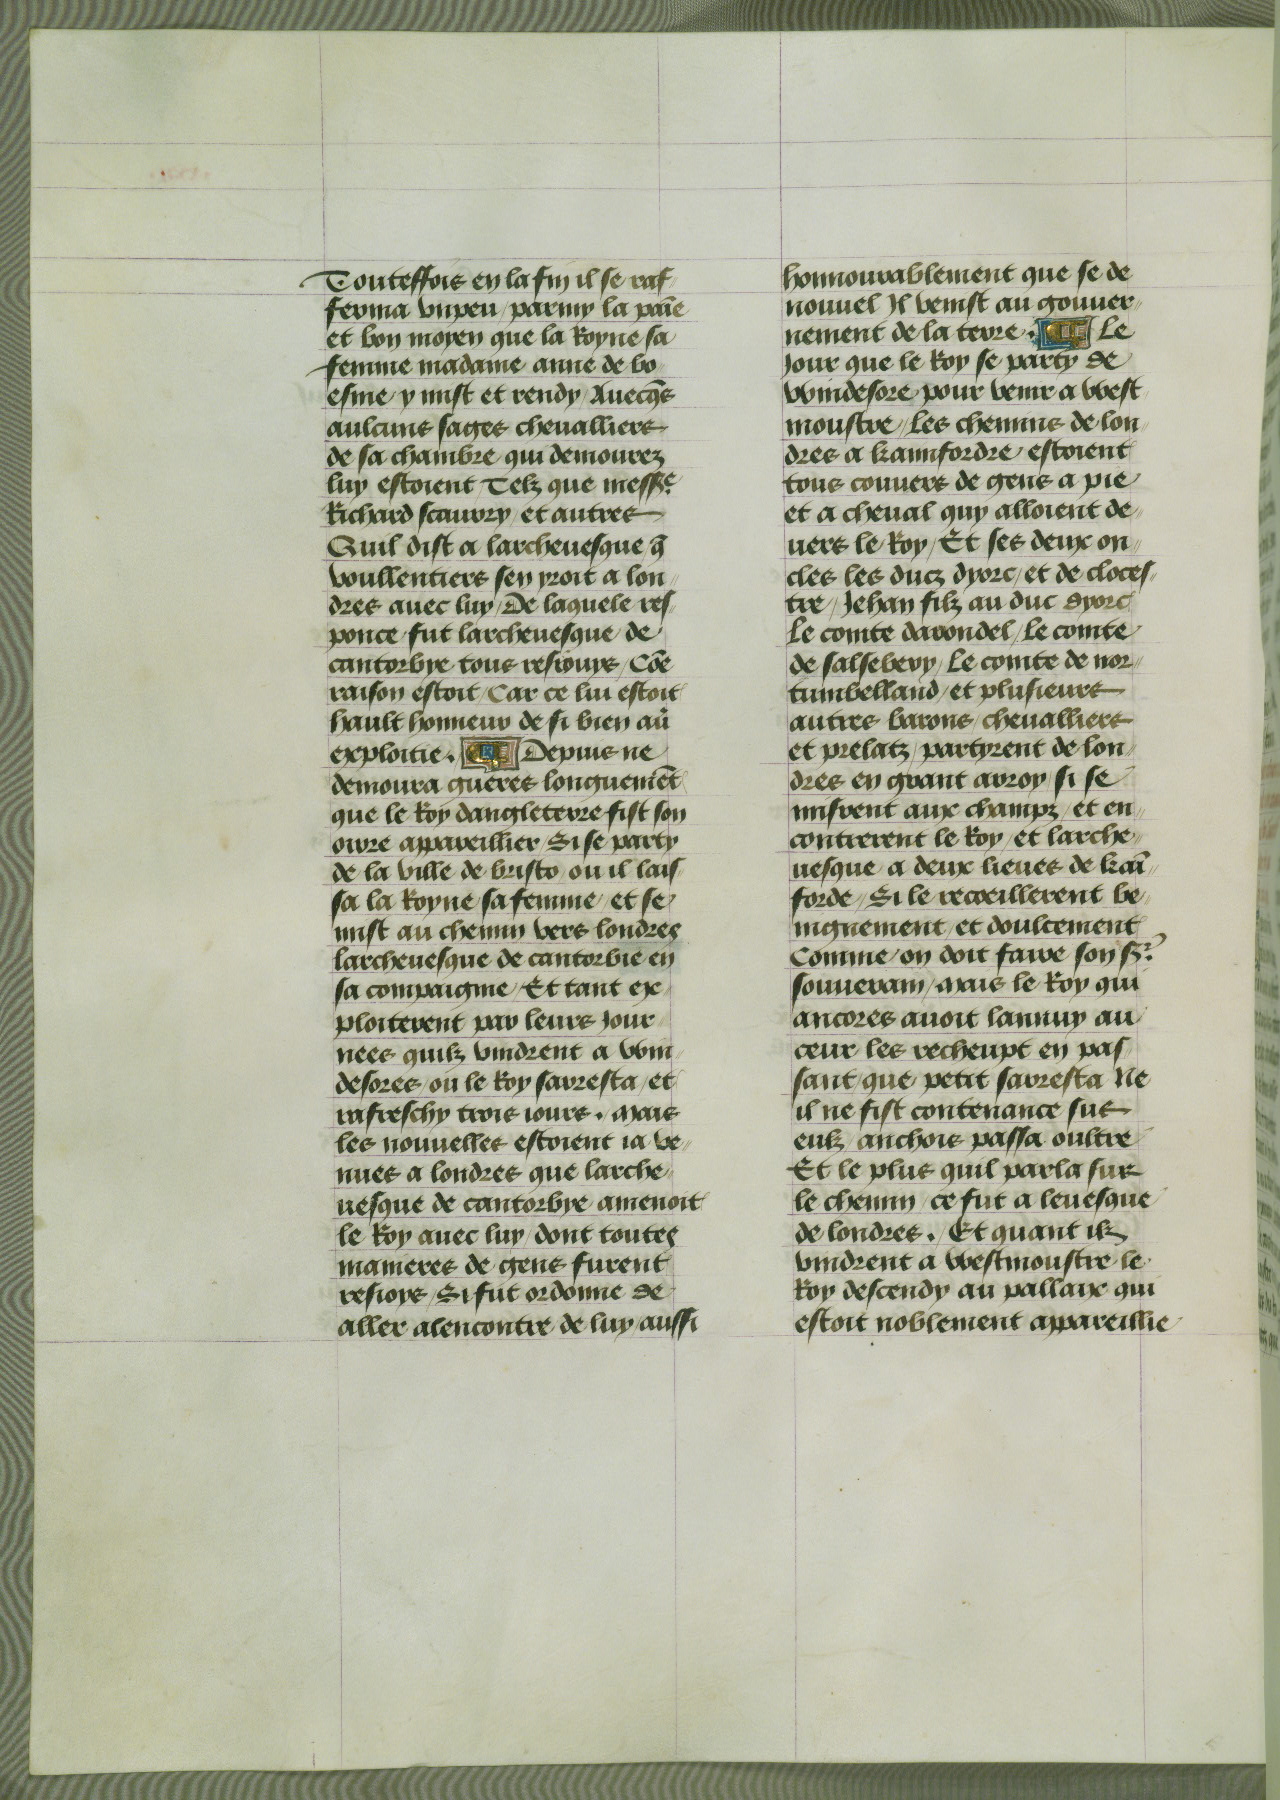 Touteffois en la fin il se raf
ferma vnpeu / parmy la paīe
et bon moyen que la Royne sa
femme madame anne de bo
esme / y mist et rendy / Auecq̄s
aulcuns sages cheualliers
de sa chambre qui demourez
luy estoient / Telz que messr̄e
Richard stauory / et autres
Quil dist a larcheuesque q̄
voullentiers sen yroit a lon
dres auec luy / De laquele res
ponce fut larcheuesque de
cantorbye tous resiouys / Cōe
raison estoit / Car ce lui estoit
hault honneur de si bien au͛
exploitie . Depuis ne
demoura gueres longuemēt
que le Roy dangleterre fist son
oirre appareillier / Si se party
de la ville de bristo ou il lais
sa la Royne / sa femme / et se
mist au chemin vers londres
larcheuesque de cantorbie en
sa compaignie / Et tant ex
ploiterent par leurs Jour
nees quilz vindrent a vvin
desores / ou le Roy sarresta / et
rafreschy trois iours . mais
les nouuelles estoient ia ve
nues a londres que larche
uesque de cantorbye amenoit
le Roy auec luy / dont toutes
manieres de gens furent
resioys / Si fut ordonne de
aller alencontre de luy aussi
honnourablement que se de
nouuel Jl venist au gouuer
nement de la terre . Le
Jour que le Roy se party de
vvindesore / pour venir a vvest
moustre / Les chemins de lon
dres a kainfordre estoient
tous couuers de gens a pie
et a cheual quy alloient de
uers le Roy / Et ses deux on
cles les ducz dyorc / et de cloces
tre / Jehan filz au duc dyorc
Le comte darondel / Le comte
de salsebery / Le comte de nor
tumbelland / et plusieurs
autres barons / cheualliers
et prelatz / partyrent de lon
dres en grant arroy si se
misrent aux champz / et en
contrerent le Roy / et larche
uesque a deux lieues de kaī
forde / Si le recoeillerent be
nignement / et doulcement
Comme / on doit faire son sr̄
souuerain / mais le Roy qui
ancores auoit lannuy au
ceur les recheupt en pas
sant / que petit sarresta Ne
il ne fist contenance sus
eulz / anchois passa oultre
Et le plus quil parla sur
le chemin / ce fut a leuesque
de londres . / Et quant ilz
vindrent a vvestmoustre le
Roy descendy au pallaix qui
estoit noblement appareillie